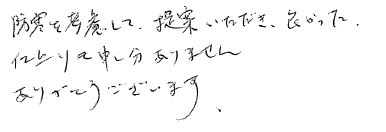 防寒を考慮して、提案いただき、良かった。
仕上りも申し分ありません
ありがとうございます。